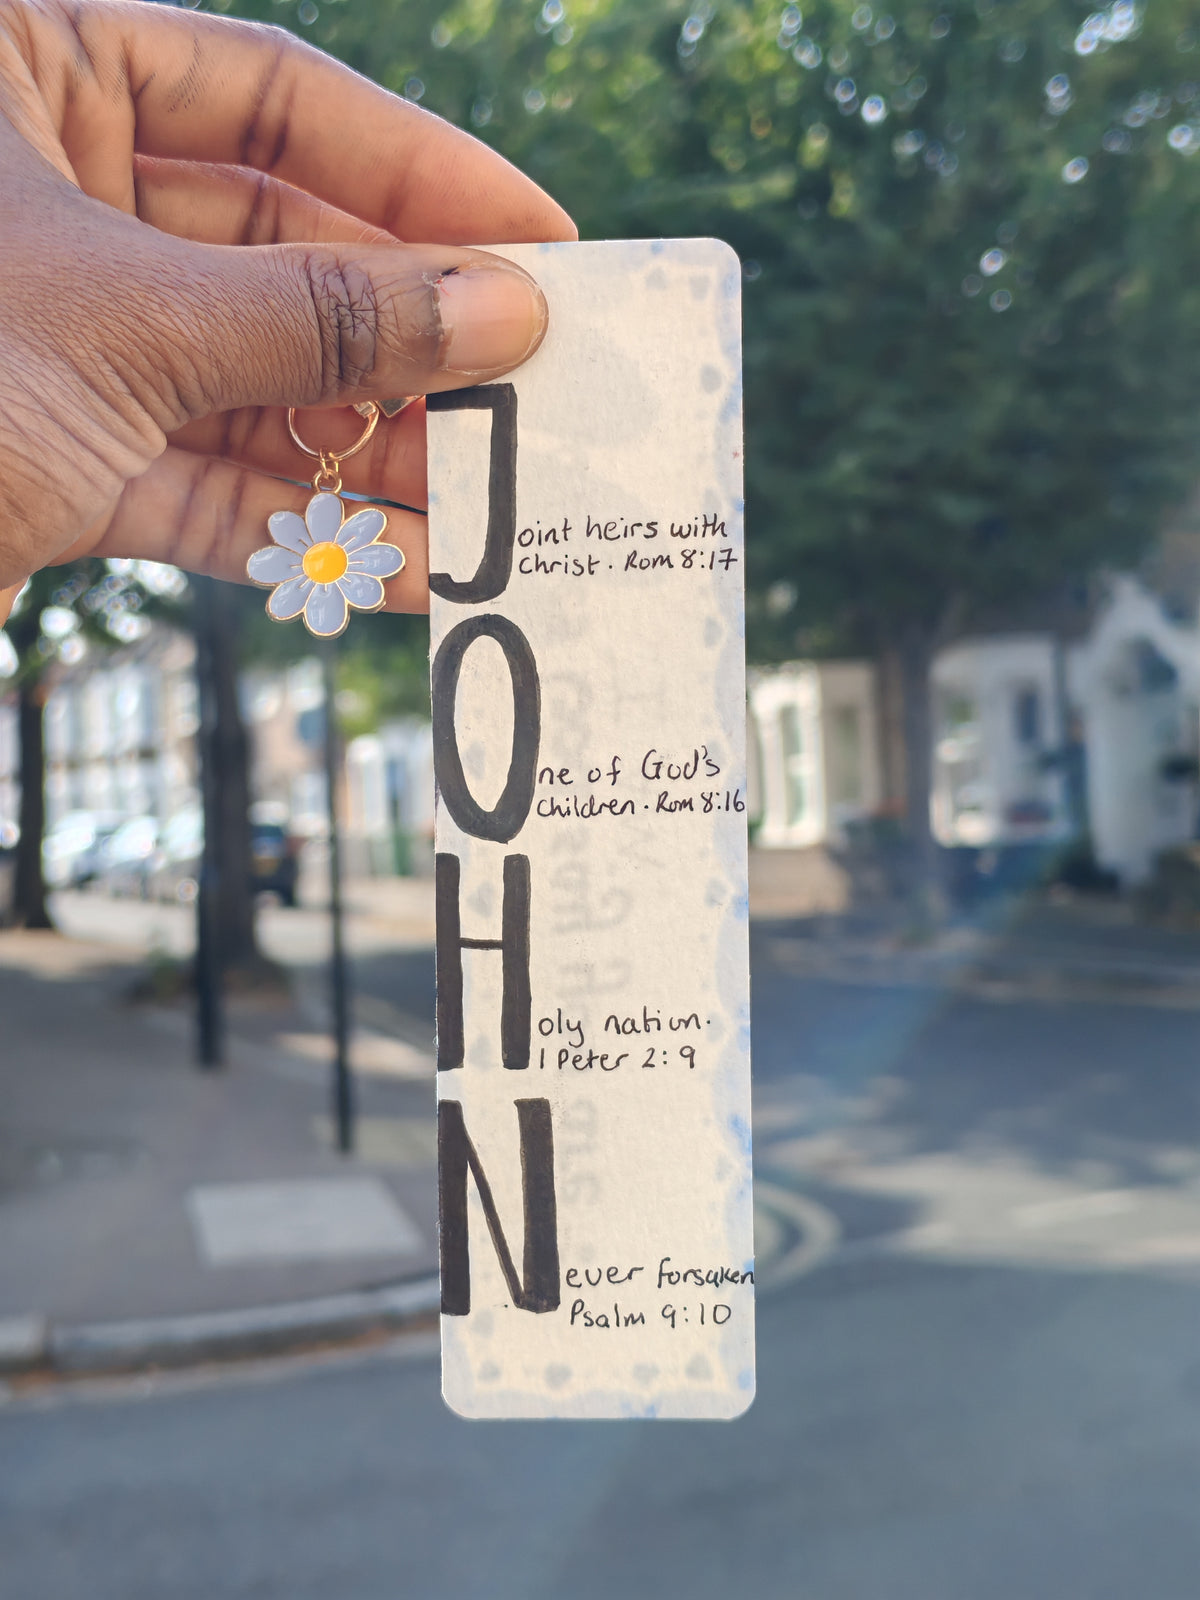 Joint heirs with
Christ. Rom 8:17
One of God's
Children. Rom 8:16
Holy nation.
1 Peter 2:9
Never forsaken
Psalm 9:10